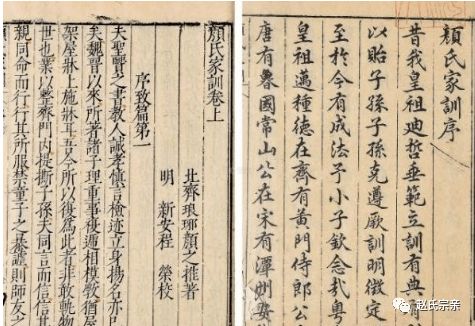 顏氏家訓序
昔我皇祖迪哲垂範立訓有典
以貽子孫子孫克遵厥訓明徵定
至於今有成法予小子欽念哉粵
皇祖邁種德在齊有黃門侍郎公
唐有魯國常山公在宋有潭州安
顏氏家訓卷上
北齊琅琊顏之推著
明 新安程 榮校
序致篇第一
夫聖賢之書教人誠孝慎言檢迹立身揚名亦
矣魏晉以來所著諸子理重事複遞相模斆猶屋
架屋牀上施牀耳吾今所以復為此者非敢軌物
世也業以整齊門內提撕子孫夫同言而信信其
親同命而行行其所服禁童子之暴謔則師友之
赵氏宗亲